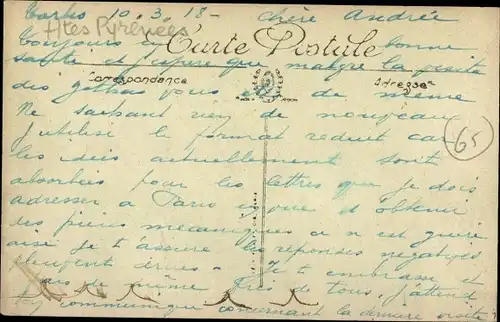 Tarbes 10.3.18- Chère Andrée
Htes Pyrénées
Toujours en bonne
Carte Postale
santé et j'espère que malgré la visite
Correspondance Adresse
des gothas vous de même
Ne sachant rien de nouveau
j'utilise le format réduit car
65
les idées actuellement sont
absorbées pour les lettres que je dois
adresser à Paris d'obtenir
des pièces mécaniques ce n'est guère
aisé je t'assure les réponses négatives
pleuvent drues - Je t'embrasse et
de même de tous, j'attend
communique concernant la dernière visite